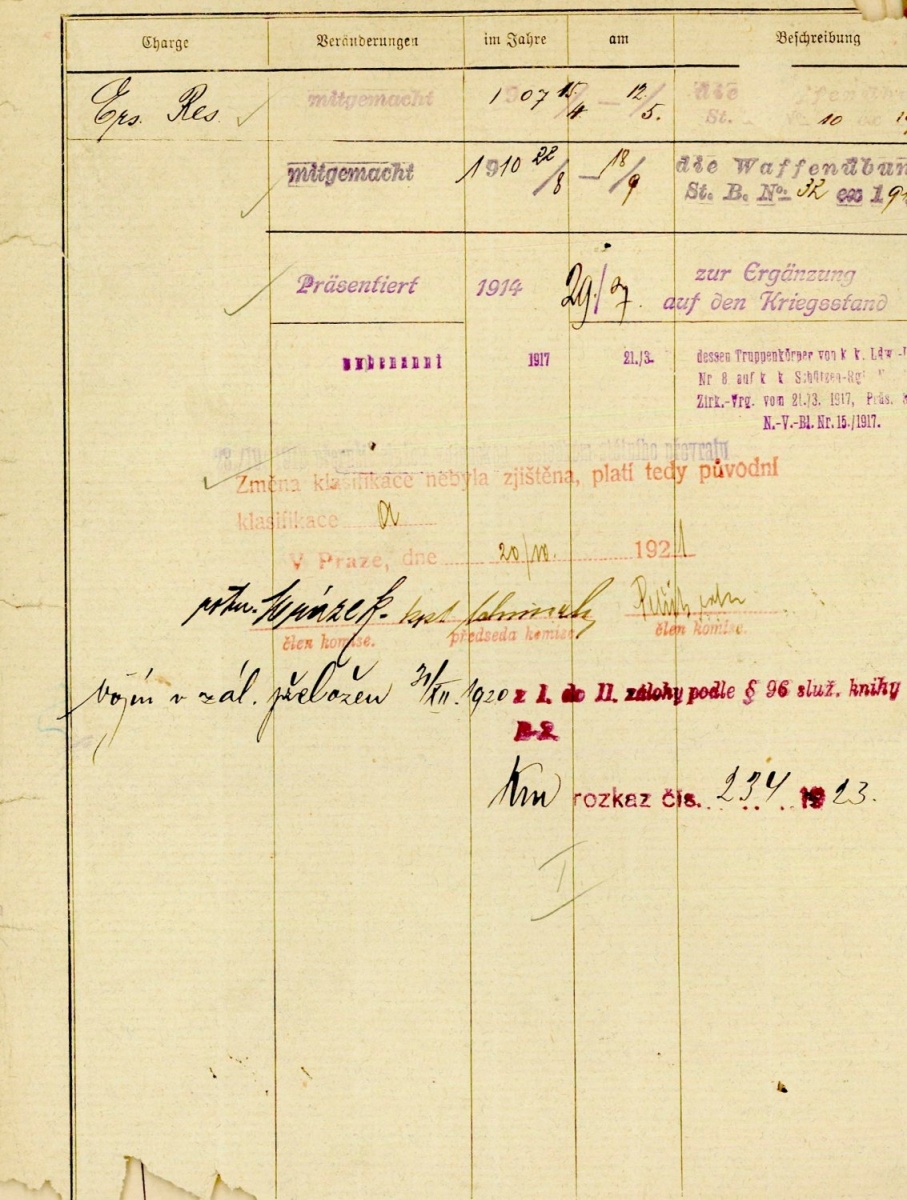 Charge Veränderungen im Jahre am Beschreibung
Ers. Res. mitgemacht 1907 15/4 — 12/5. die
St. 10
mitgemacht 1910 22/8 — 18/9 die Waffenübun
St. B. No. 32 ex 19
Präsentiert 1914 29./7. zur Ergänzung
auf den Kriegsstand
umbenannt 1917 21./3. dessen Truppenkörper von k. k. Ldw.-
Nr 8 auf k. k. Schützen-Rgt.
Zirk.-Vrg. vom 21./3. 1917, Präs.
N.-V.-Bl. Nr. 15./1917.
státního převratu
Změna klasifikace nebyla zjištěna, platí tedy původní
klasifikace a
V Praze, dne 20/10. 1921
člen komise. předseda komise. člen komise.
Vojín v zál. přeložen 31/XII. 1920 z I. do II. zálohy podle § 96 služ. knihy
B-2.
Km rozkaz čís. 234 1923.
I